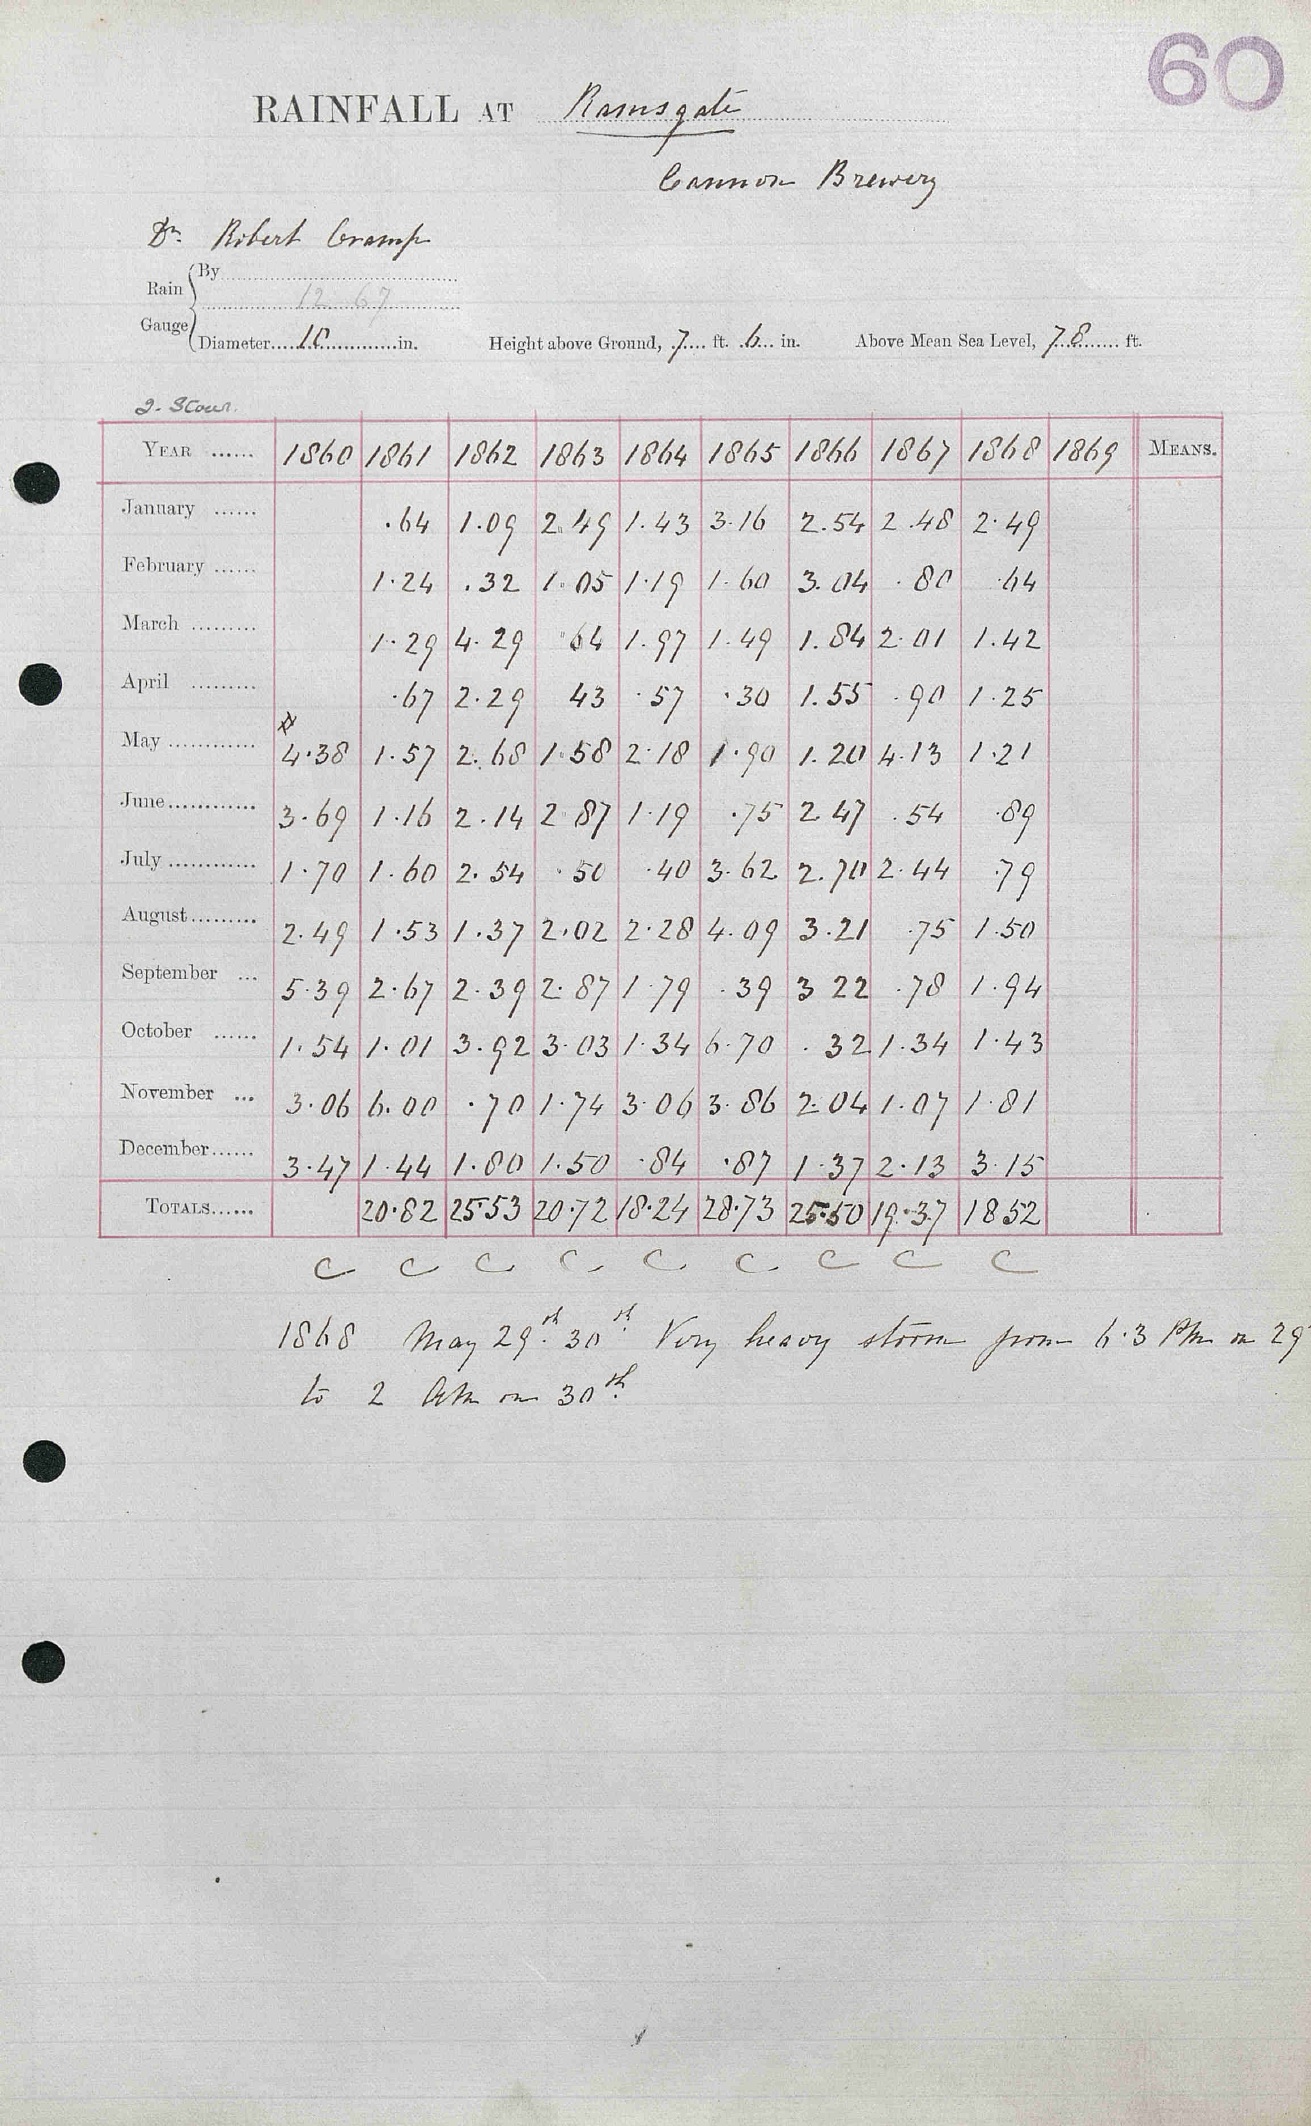 60
RAINFALL AT Ramsgate
Cannon Brewery
Dr. Robert Cramp
Rain Gauge
By
12 67
Diameter 10 in. Height above Ground, 7 ft. 6 in. Above Mean Sea Level, 78 ft.
2. Stour.
YEAR ...... 1860 1861 1862 1863 1864 1865 1866 1867 1868 1869 MEANS.
January ...... .64 1.09 2.49 1.43 3.16 2.54 2.48 2.49
February ...... 1.24 .32 1.05 1.19 1.60 3.04 .80 .64
March ......... 1.29 4.29 .64 1.97 1.49 1.84 2.01 1.42
April ......... .67 2.29 43 .57 .30 1.55 .90 1.25
May ............ 4.38 1.57 2.68 1.58 2.18 1.90 1.20 4.13 1.21
June............ 3.69 1.16 2.14 2.87 1.19 .75 2.47 .54 .89
July ............ 1.70 1.60 2.54 .50 .40 3.62 2.70 2.44 .79
August......... 2.49 1.53 1.37 2.02 2.28 4.09 3.21 .75 1.50
September ... 5.39 2.67 2.39 2.87 1.79 .39 3 22 .78 1.94
October ...... 1.54 1.01 3.92 3.03 1.34 6.70 .32 1.34 1.43
November ... 3.06 6.00 .70 1.74 3.06 3.86 2.04 1.07 1.81
December...... 3.47 1.44 1.80 1.50 .84 .87 1.37 2.13 3.15
TOTALS...... 20.82 25.53 20.72 18.24 28.73 25.50 19.37 18 52
C C C C C C C C C
1868 May 29th. 30th. Very heavy storm from 6.3 PM on 29
to 2 AM on 30th.